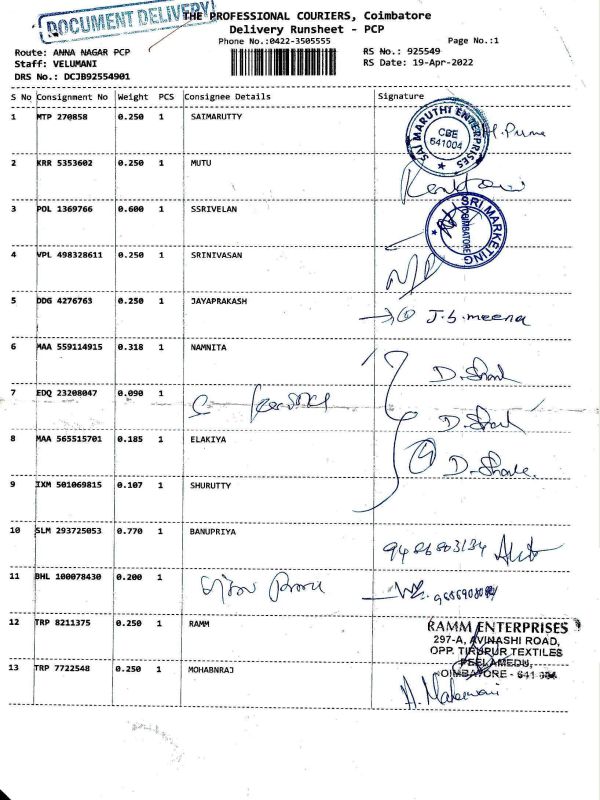 DOCUMENT DELIVERY
THE PROFESSIONAL COURIERS, Coimbatore
Delivery Runsheet - PCP
Phone No.:0422-3505555
Page No.:1
Route: ANNA NAGAR PCP
RS No.: 925549
Staff: VELUMANI
RS Date: 19-Apr-2022
DRS No.: DCJB92554901
S No Consignment No Weight PCS Consignee Details Signature
1 MTP 270858 0.250 1 SAIMARUTTY
SAI MARUTHI ENTERPRISES
CBE
641004
2 KRR 5353602 0.250 1 MUTU
3 POL 1369766 0.600 1 SSRIVELAN
SRI MARKETING
COIMBATORE
4 VPL 498328611 0.250 1 SRINIVASAN
5 DDG 4276763 0.250 1 JAYAPRAKASH
J.S.meena
6 MAA 559114915 0.318 1 NAMNITA
7 EDQ 23208047 0.090 1
8 MAA 565515701 0.185 1 ELAKIYA
9 IXM 501069815 0.107 1 SHURUTTY
10 SLM 293725053 0.770 1 BANUPRIYA
11 BHL 100078430 0.200 1
12 TRP 8211375 0.250 1 RAMM
RAMM ENTERPRISES
297-A, AVINASHI ROAD,
OPP. TIRUPUR TEXTILES
PEELAMEDU,
COIMBATORE - 641 004
13 TRP 7722548 0.250 1 MOHABNRAJ